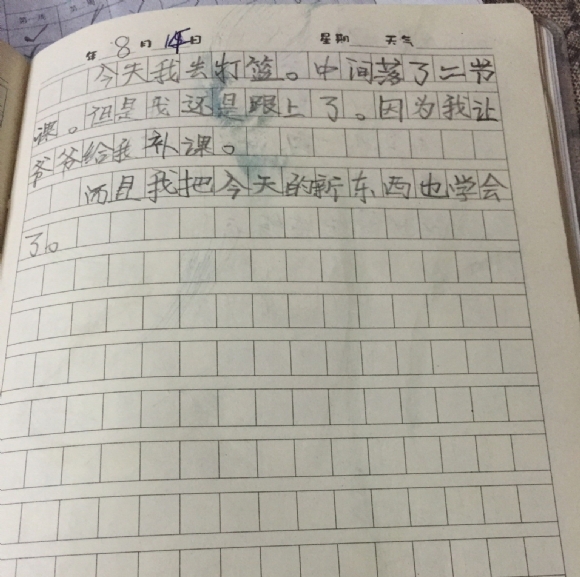 年 8 月 14 日 星期 天气
今天我去打篮。中间落了二节
课。但是我还是跟上了。因为我让
爷爷给我补课。
而且我把今天的新东西也学会
了。